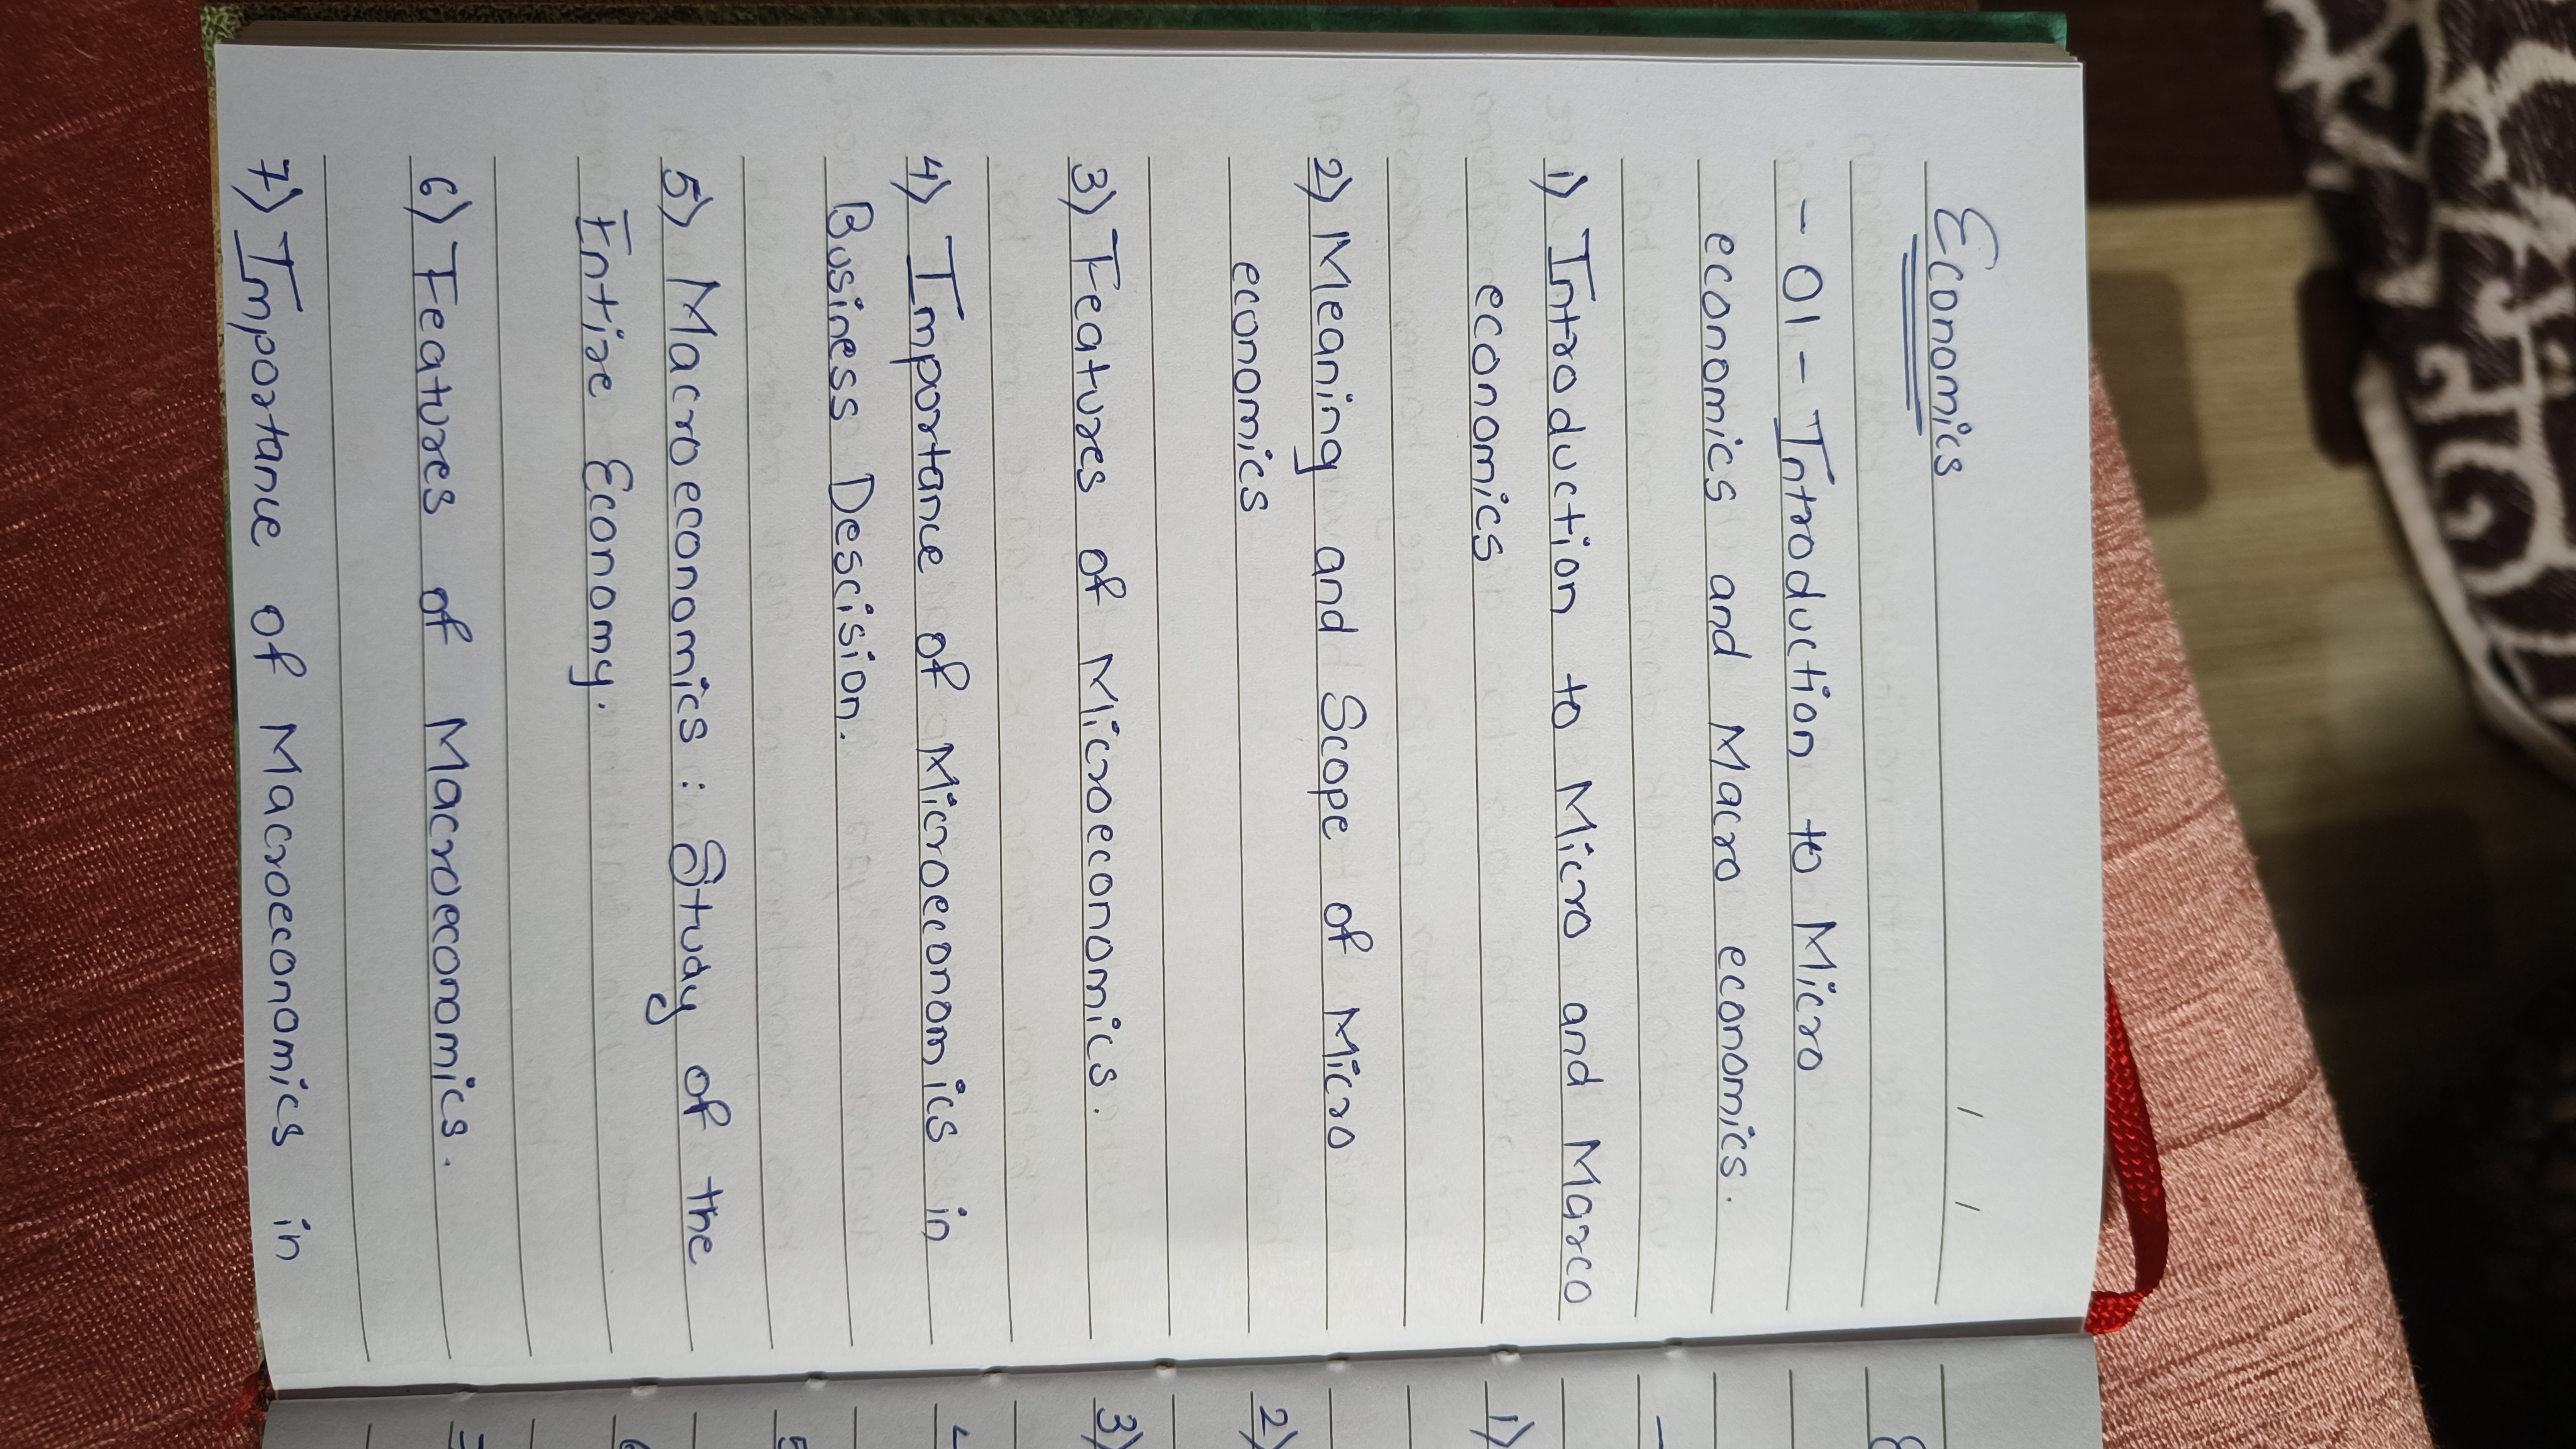 Economics
- 01 - Introduction to Micro
economics and Macro economics.
1) Introduction to Micro and Marco
economics
2) Meaning and Scope of Micro
economics
3) Features of Microeconomics.
4) Importance of Microeconomics in
Business Descision.
5) Macroeconomics : Study of the
Entire Economy.
6) Features of Macroeconomics.
7) Importance of Macroeconomics in
1)
2)
3)